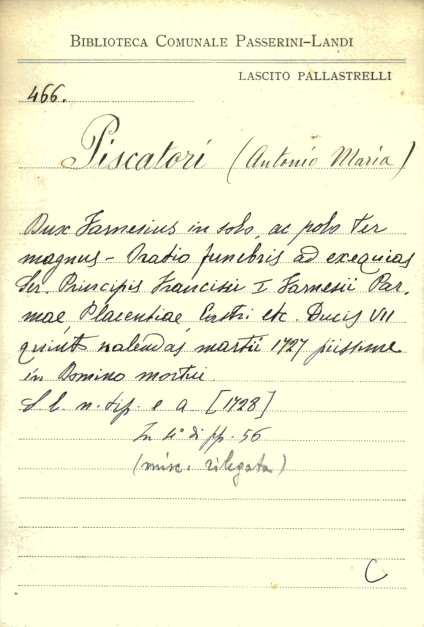 BIBLIOTECA COMUNALE PASSERINI-LANDI
LASCITO PALLASTRELLI
466.
Piscatori (Antonio Maria)
Dux Farnesius in solo, ac polo ter
magnus - Oratio funebris ad exequias
Ser. Principis Francisci I Farnesii Par-
mae, Placentiae, Castri etc. Ducis VII
quint. kalendas martii 1727 piissime
in Domino mortui
S. l. n. tip. e a [1728]
In 4° di pp. 56
(misc. rilegata)
C